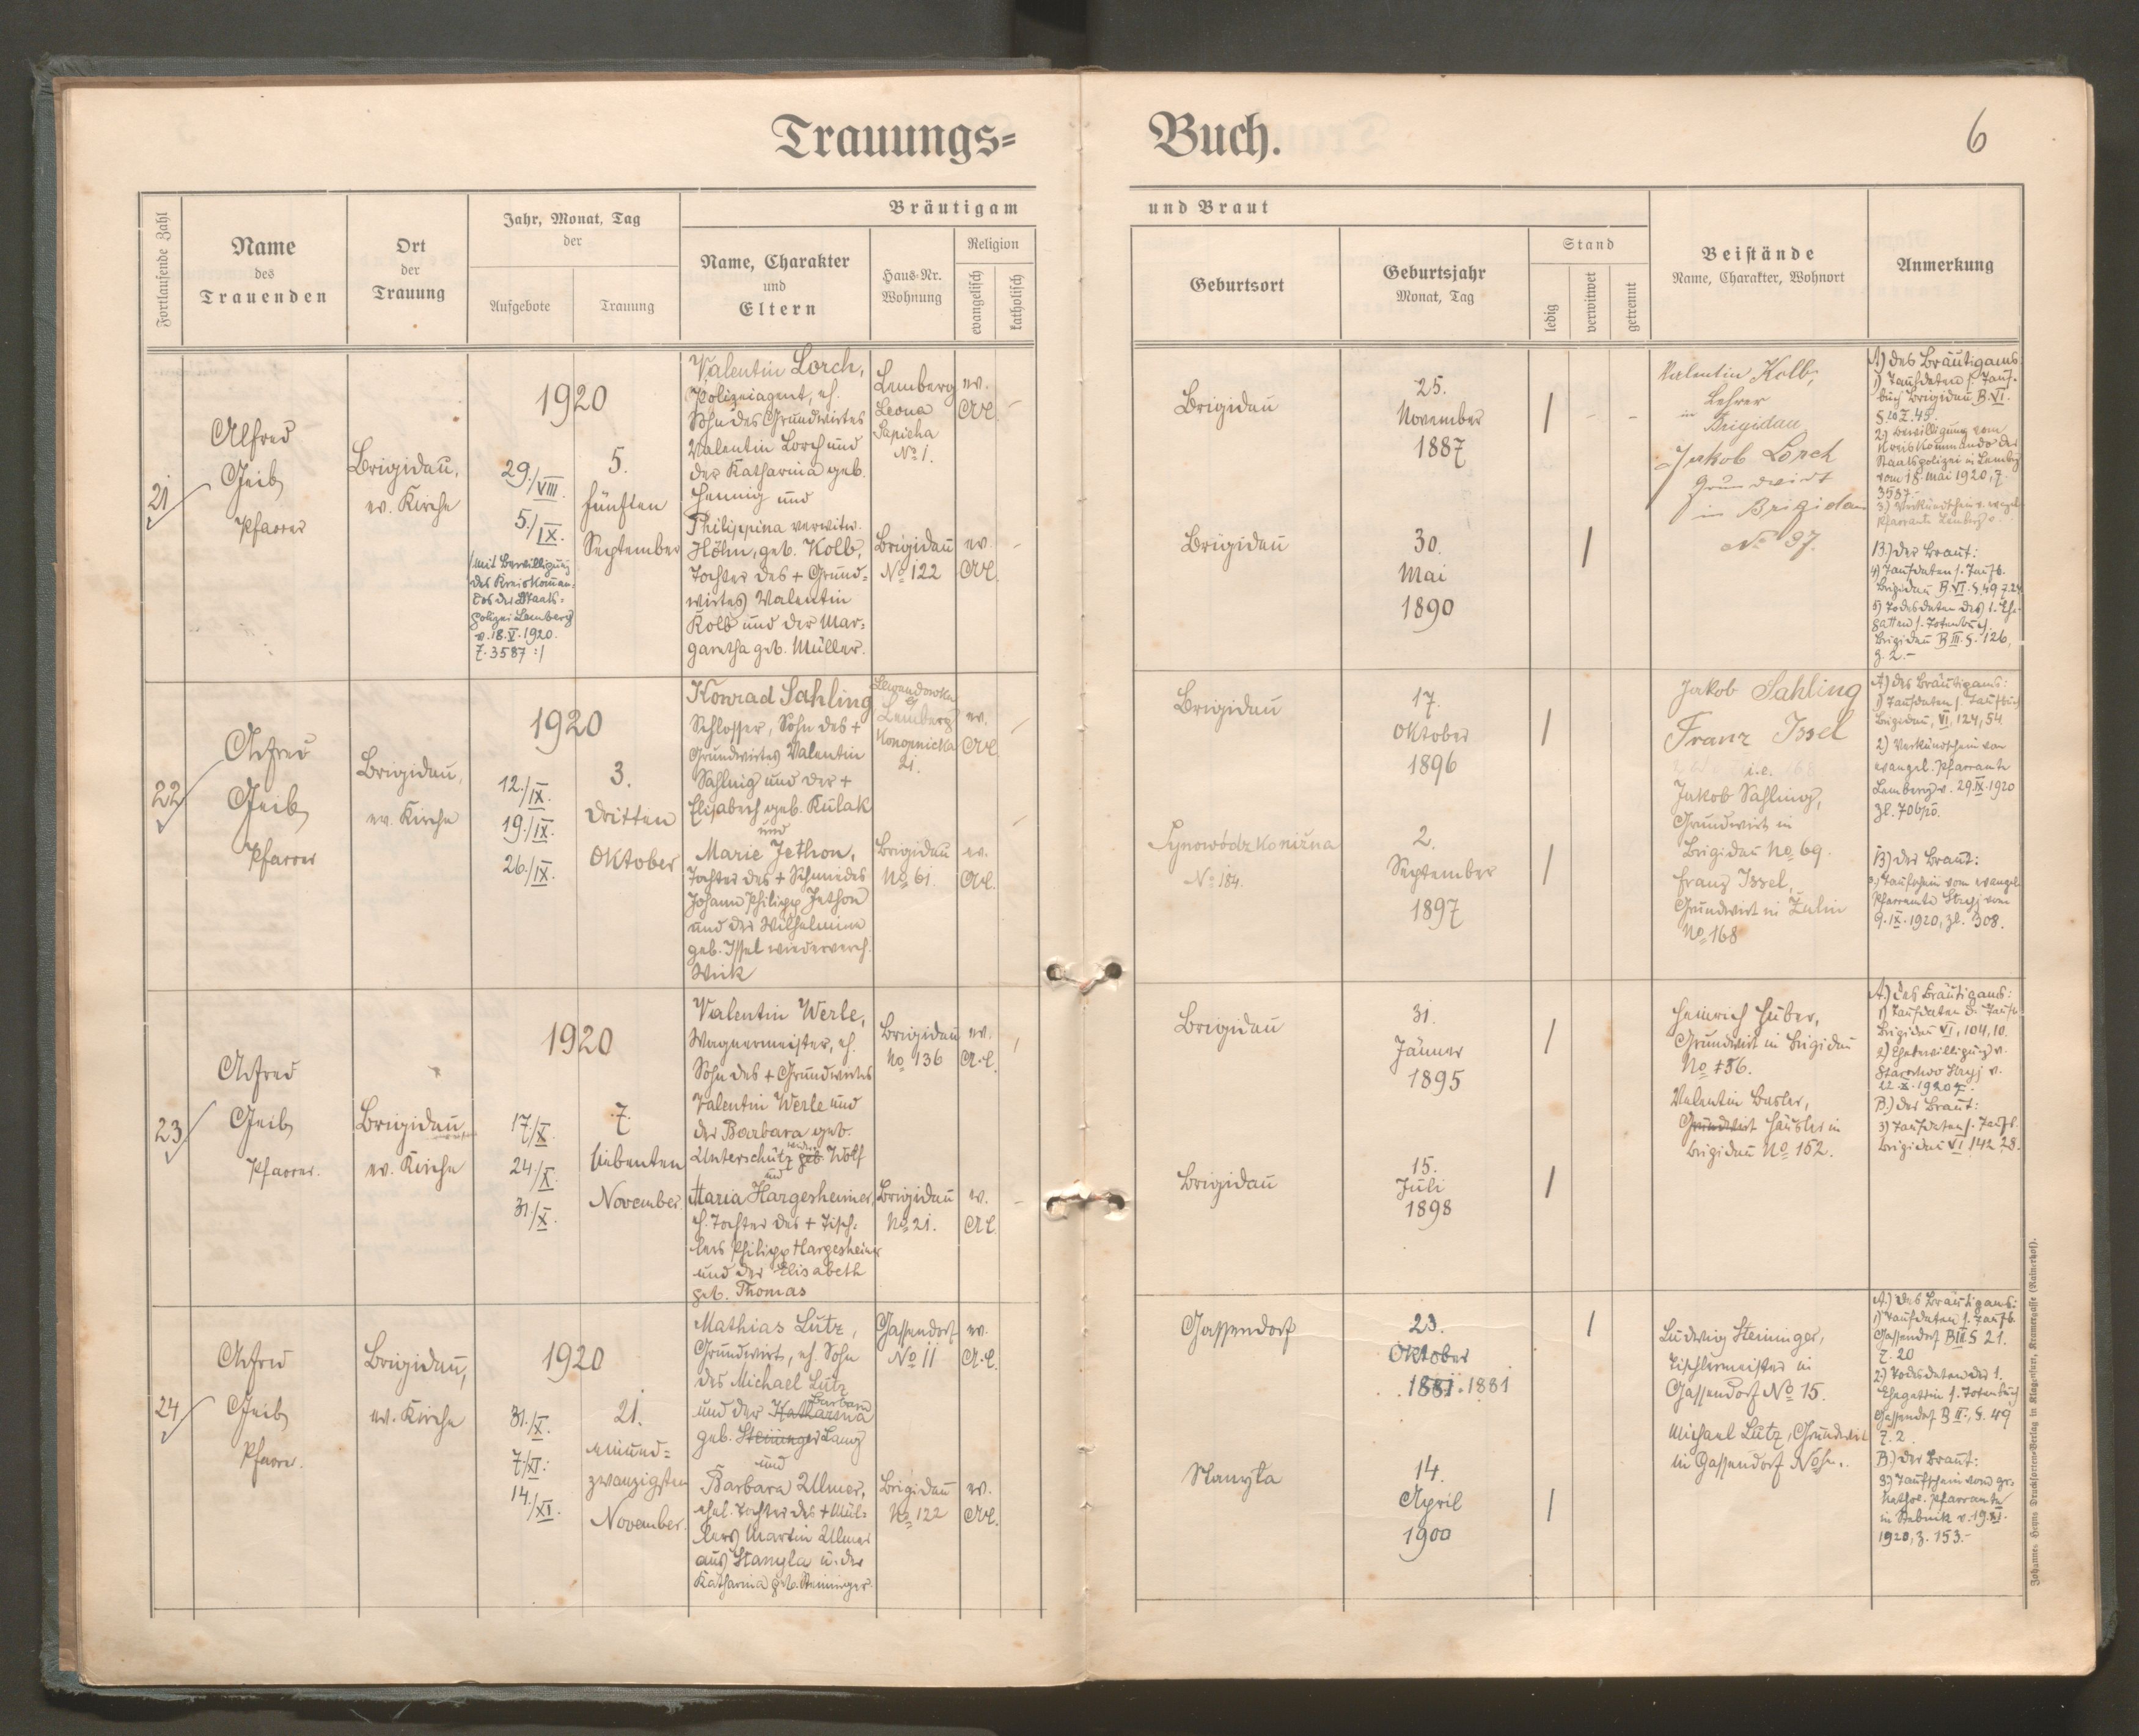 Trauungs=
Buch.
6
Fortlaufende Zahl
Name
des
Trauenden
Ort
der
Trauung
Jahr, Monat, Tag
der
Aufgebote
Trauung
Bräutigam
Name, Charakter
und
Eltern
Haus-Nr.
Wohnung
Religion
evangelisch
katholisch
und Braut
Geburtsort
Geburtsjahr
Monat, Tag
Stand
ledig
verwitwet
getrennt
Beistände
Name, Charakter, Wohnort
Anmerkung
21
Alfred
Geib
Pfarrer
Brigidau,
ev. Kirche
1920
29./VIII.
5./IX.
/: mit Bewilligung
des Kreiskomman-
dos der Staats=
polizei Lemberg
v. 18.V.1920.
Z. 3587 :/
5.
fünften
September
Valentin Lorch,
Polizeiagent, eh.
Sohn des Grundwirtes
Valentin Lorch und
der Katharina geb.
Hennig und
Philippina verwitw.
Höhn, geb. Kolb,
Tochter des + Grund=
wirtes Valentin
Kolb und der Mar=
garetha geb. Müller.
Lemberg
Leona
Sapieha
No 1.
ev.
A.C.
Brigidau
No 122
ev.
A.C.
Brigidau
25.
November
1887
Brigidau
30.
Mai
1890
Valentin Kolb,
Lehrer
in
Brigidau
Jakob Lorch
Grundwirt
in Brigidau
No 97.
A) des Bräutigams
1) Taufdaten s. Tauf-
buch Brigidau B. VI.
2) Bewilligung vom
Kreiskommando der
Staatspolizei in Lemberg
vom 18. Mai 1920, Z.
3587.-
3) Verkündschein v. evangel.
Pfarramte Lemberg
B.) der Braut:
4) Taufdaten s. Taufb.
Brigidau B. VI. S. 49 Z. 24
5) Todesdaten des 1. Ehe-
gatten s. Totenbuch
Brigidau B III. S. 126,
Z. 2.-
22
Alfred
Geib
Pfarrer
Brigidau,
ev. Kirche
1920
12./IX.
19./IX.
26./IX.
3.
dritten
Oktober
Konrad Sahling
Schlosser, Sohn des +
Grundwirtes Valentin
Sahling und der +
Elisabeth geb. Kulak
und
Marie Jethon,
Tochter des + Schmiedes
Johann Philipp Jethon
und der Wilhelmine
geb. Issel wiedervereh.
Wick
Lewandowka
bei
Lemberg
Konopnicka
21.
ev.
A.C.
Brigidau
No 61
ev.
A.C.
Brigidau
17.
Oktober
1896
Synowódzko niżna
No 184.
2.
September
1897
Jakob Sahling
Franz Issel
i.e.
Jakob Sahling,
Grundwirt in
Brigidau No 69.
Franz Issel,
Grundwirt in Zulin
No 168
A) des Bräutigams:
1) Taufdaten s. Taufbuch
Brigidau, VI, 124, 54.
2) Verkündschein vom
evangel. Pfarramte
Lemberg v. 29.IX.1920
B) der Braut:
3) Taufschein vom evangel.
Pfarramte Stryj vom
9.IX.1920, Zl. 308.
23
Alfred
Geib
Pfarrer.
Brigidau
ev. Kirche
1920
17./X.
24./X.
31./X.
7.
siebenten
November.
Valentin Werle,
Wagnermeister, eh.
Sohn des + Grundwirtes
Valentin Werle und
der Barbara geb.
Unterschütz geb. Wolf
und
Maria Hargesheimer,
eh. Tochter des + Tisch=
lers Philipp Hargesheimer
und der Elisabeth
geb. Thomas
Brigidau
No 136
ev.
A.C.
Brigidau
No 21.
ev.
A.C.
Brigidau
31.
Jänner
1895
Brigidau
15.
Juli
1898
Heinrich Huber,
Grundwirt in Brigidau
No 156.
Valentin Basler,
Grundwirt Häusler in
Brigidau No 152.
A.) des Bräutigams:
Brigidau VI, 104, 10.
2) Ehebewilligung v.
Starostwo Stryj v.
B.) der Braut:
3) Taufdaten s. Taufb.
Brigidau VI 142 28.
24
Alfred
Geib
Pfarrer.
Brigidau,
ev. Kirche
1920
31./X.
7./XI.
14./XI.
21.
einund=
zwanzigsten
November.
Mathias Lutz,
Grundwirt, eh. Sohn
des Michael Lutz
Barbara
und der Katharina
geb. Steininger Lang
und
Barbara Ullmer,
ehel. Tochter des + Mül=
lers Martin Ullmer
aus Stanyla u. der
Katharina geb. Steininger.
Gassendorf
No 11
ev.
A.C.
Brigidau
No 122
ev.
A.C.
Gassendorf
23.
Oktober
1881. 1881
Stanyla
14.
April
1900
Ludwig Steininger,
Tischlermeister in
Gassendorf No 15.
Michael Lutz, Grundwirt
in Gassendorf No
A.) des Bräutigams:
1) Taufdaten s. Taufb.
Gassendorf B III S 21.
Z. 20
2) Todesdaten der 1.
Ehegattin s. Totenbuch
Gassendorf B II., S. 49
Z. 2.
B.) der Braut:
3) Taufschein vom gr.
kathol. Pfarramte
in Stebnik v. 19.XI.
1920, Z. 153.-
Johannes Heyns Drucksorten-Verlag in Klagenfurt, Kramergasse (Rainerhof).